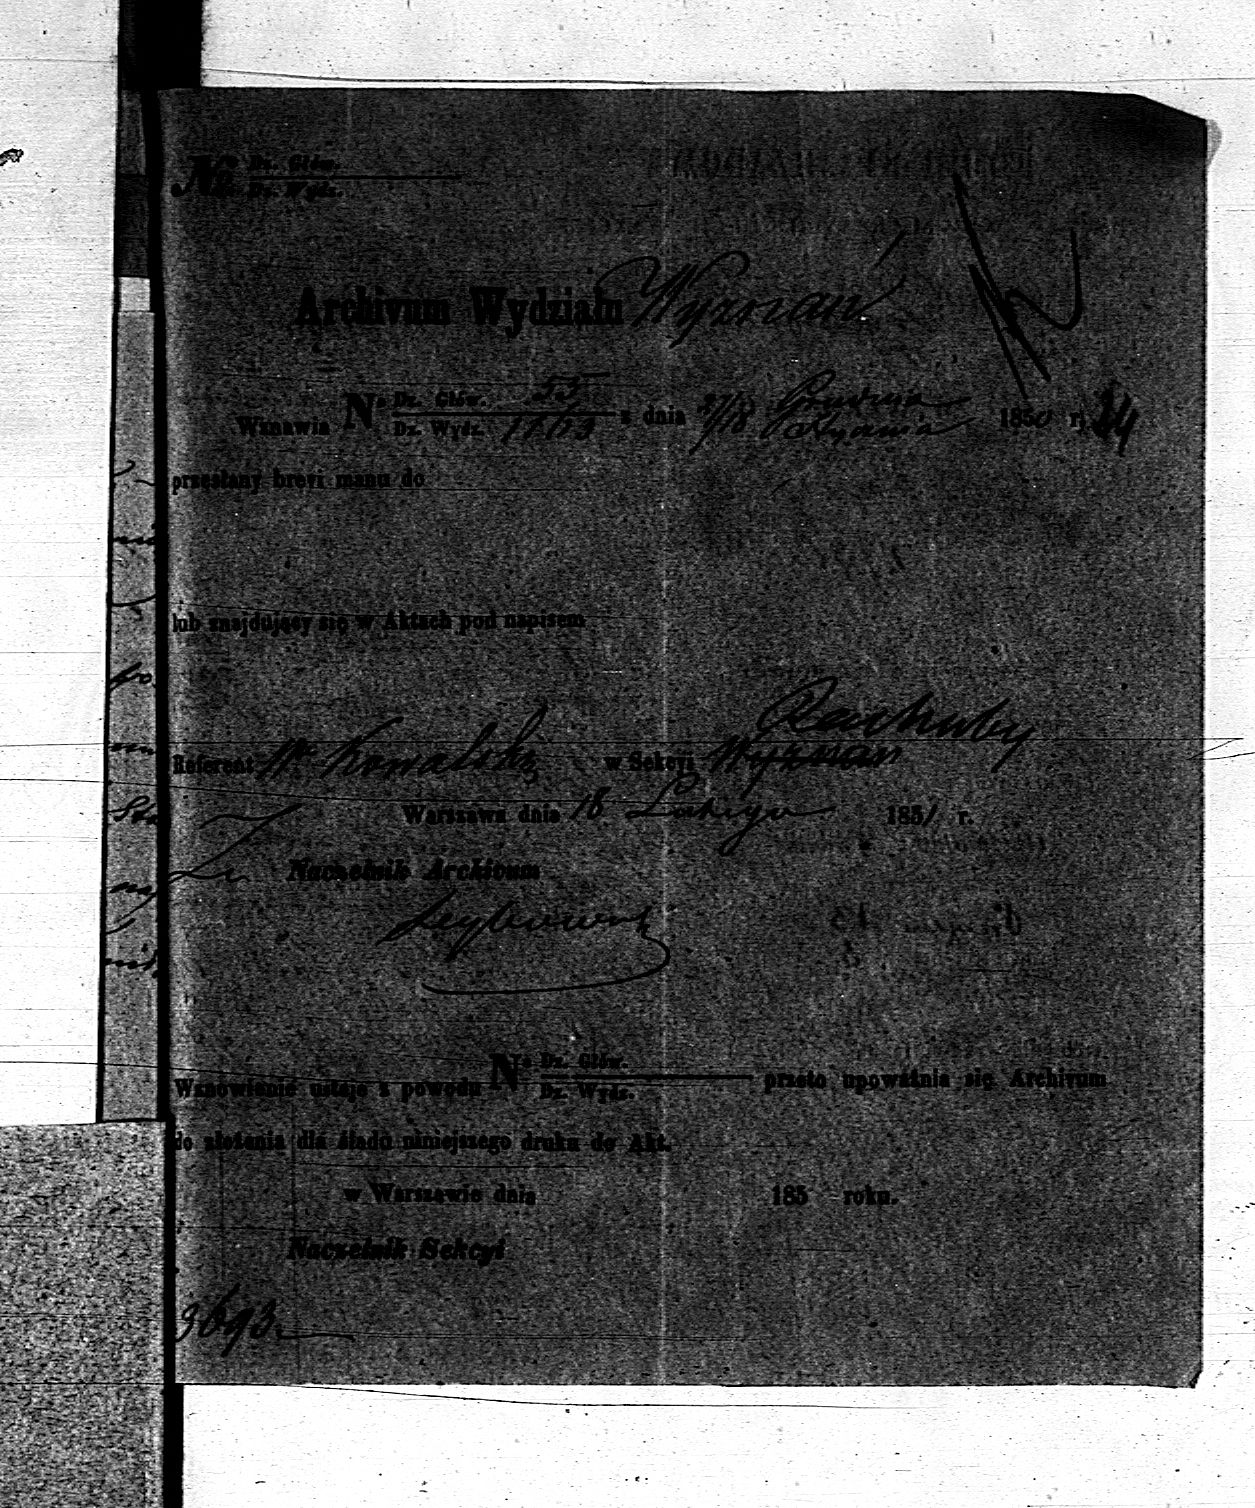 № Dz. Głów.
Dz. Wydz.
Archivum Wydziału Wyznań
Wznawia N° Dz. Głów. 55
Dz. Wydz. 1703 z dnia 27/18 Grudnia
Stycznia 1850 r. 34
przesłany brevi manu do
lub znajdujący się w Aktach pod napisem
Rachuby
Referent W. Kowalski w Sekcyi Wyznań
Warszawa dnia 18 Lutego 1851 r.
Naczelnik Archivum
Wznowienie ustaje z powodu N° Dz. Głów.
Dz. Wydz. przeto upoważnia się Archivum
do złożenia dla śladu niniejszego druku do Akt.
w Warszawie dnia 185 roku.
Naczelnik Sekcyi
3693.